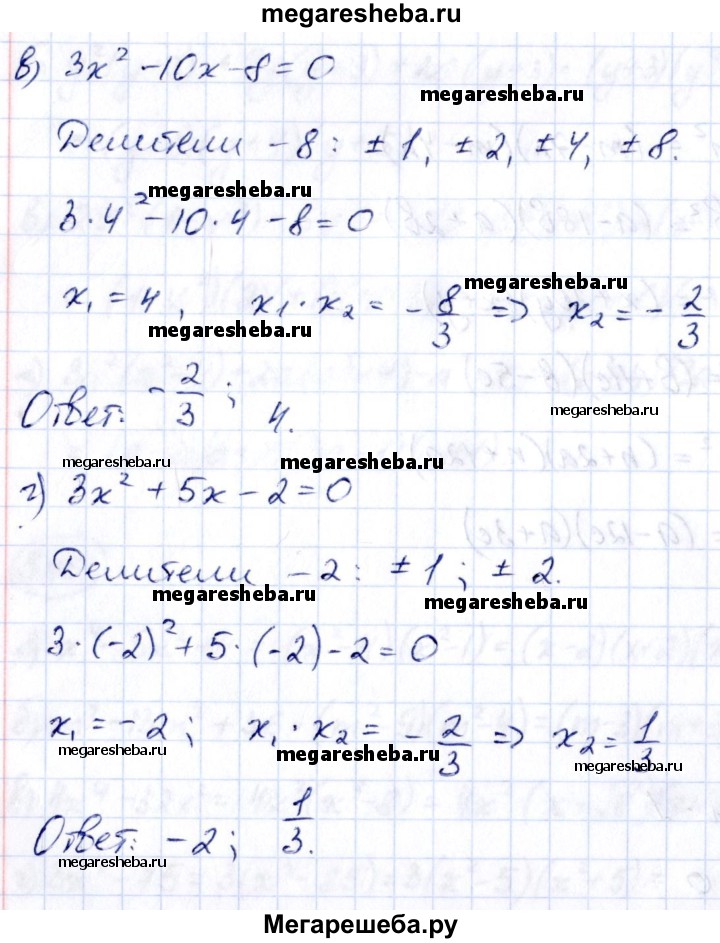 megaresheba.ru
в) 3x² - 10x - 8 = 0
megaresheba.ru
Делители -8: ±1, ±2, ±4, ±8.
megaresheba.ru
3·4² - 10·4 - 8 = 0
megaresheba.ru
x₁ = 4, x₁·x₂ = -8/3 => x₂ = -2/3
megaresheba.ru
Ответ: -2/3; 4.
megaresheba.ru
megaresheba.ru megaresheba.ru
г) 3x² + 5x - 2 = 0
Делители -2: ±1; ±2.
megaresheba.ru megaresheba.ru
3·(-2)² + 5·(-2) - 2 = 0
x₁ = -2; x₁·x₂ = -2/3 => x₂ = 1/3
megaresheba.ru megaresheba.ru megaresheba.ru
Ответ: -2; 1/3.
megaresheba.ru
Мегарешеба.ру